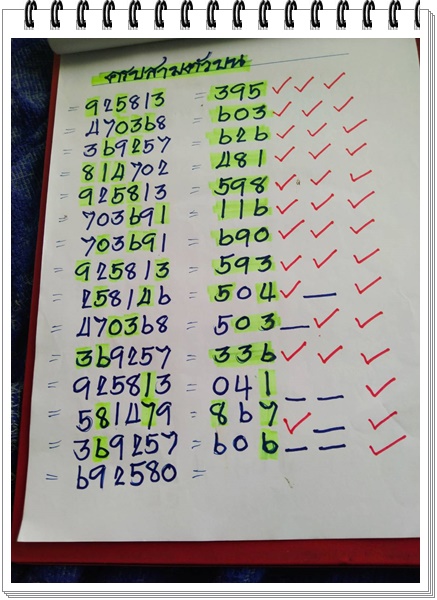 ครบสามตัวบน
= 925813 = 395 ✓✓✓
= 470368 = 603 ✓✓✓
= 369257 = 626 ✓✓✓
= 814702 = 481 ✓✓✓
= 925813 = 598 ✓✓✓
= 703691 = 116 ✓✓✓
= 703691 = 690 ✓✓✓
= 925813 = 593 ✓✓✓
= 258146 = 504 ✓–✓
= 470368 = 503 –✓✓
= 369257 = 336 ✓✓✓
= 925813 = 041 ––✓
= 581479 = 867 ✓–✓
= 369257 = 606 ––✓
= 692580 =